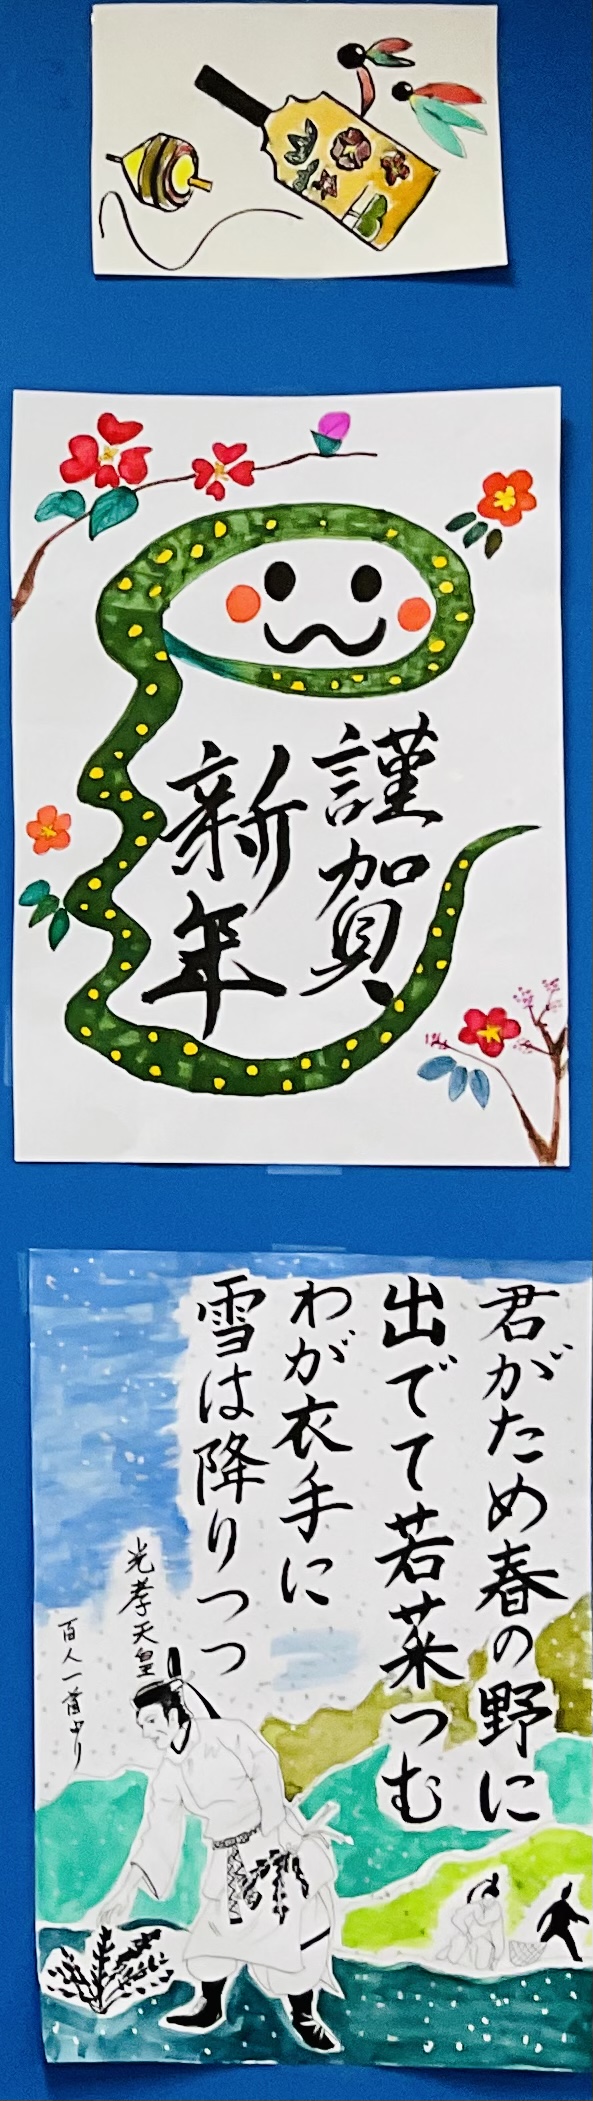 謹賀
新年
君がため春の野に
出でて若菜つむ
わが衣手に
雪は降りつつ
光孝天皇
百人一首より